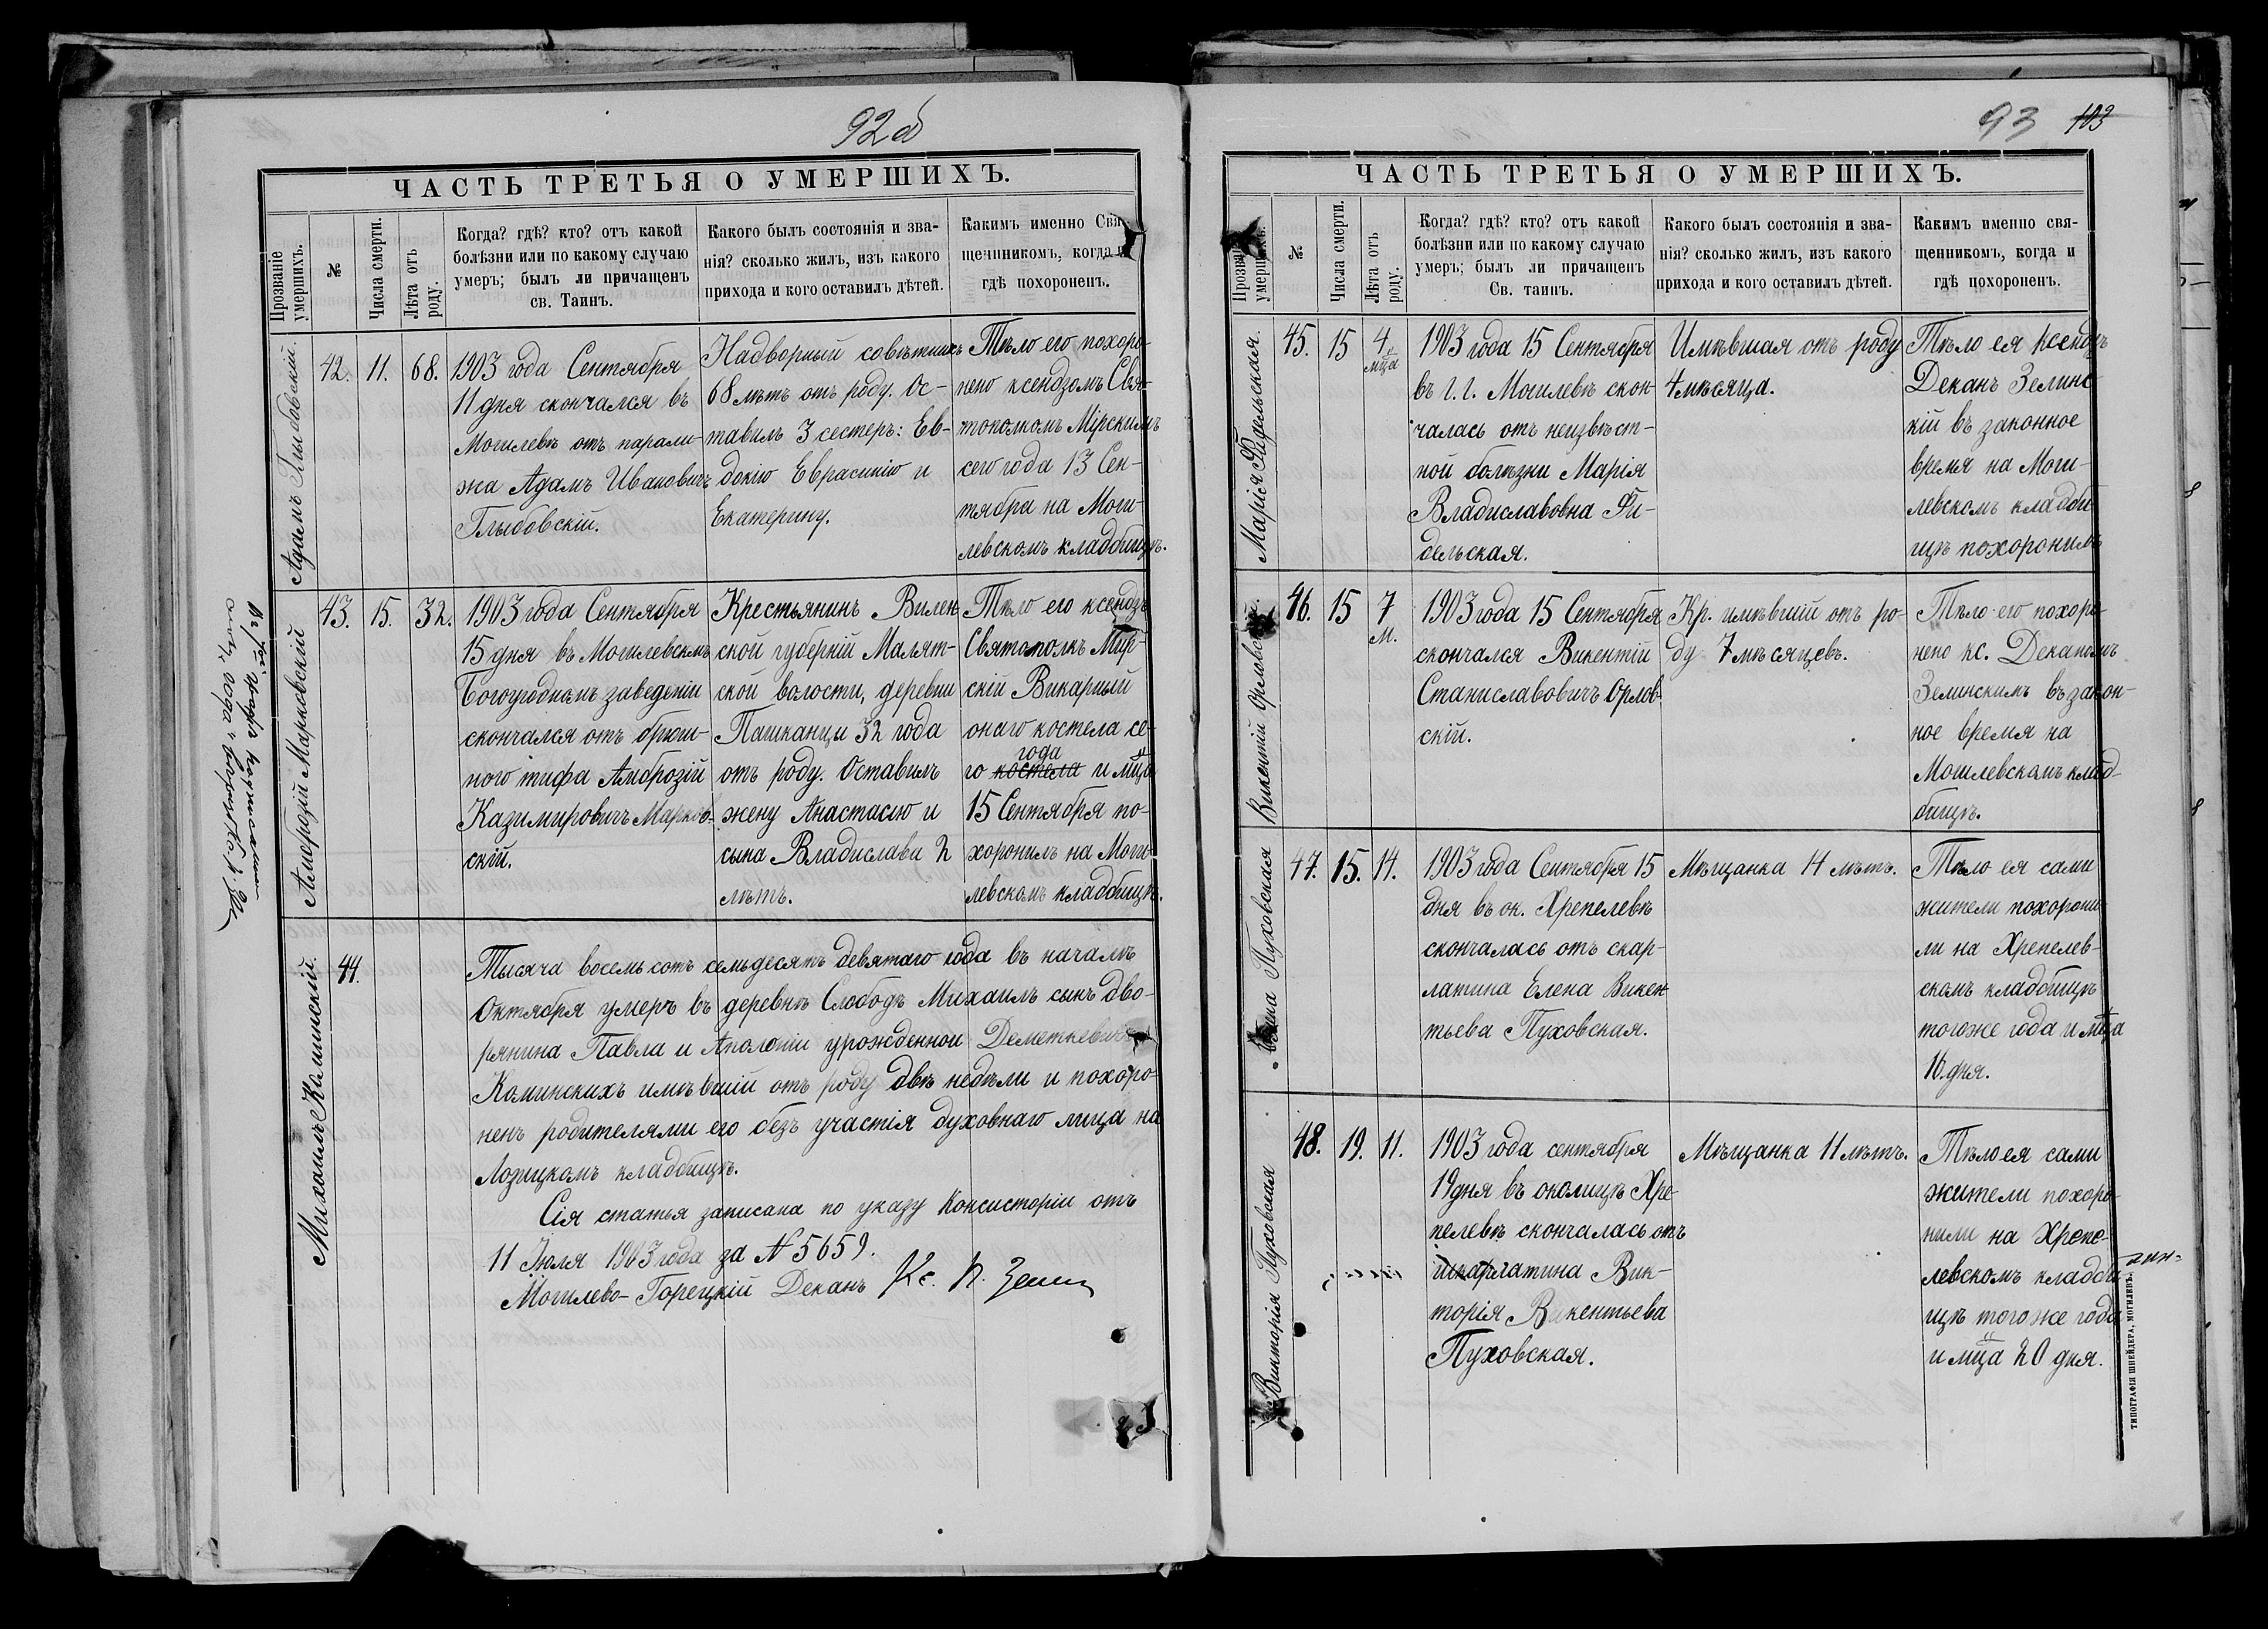 92об
ЧАСТЬ ТРЕТЬЯ О УМЕРШИХЪ.
Прозваніе умершихъ.
№
Числа смерти.
Лѣта отъ роду.
Когда? гдѣ? кто? отъ какой
болѣзни или по какому случаю
умеръ; былъ ли причащенъ
св. Таинъ.
Какого былъ состоянія и зва-
нія? сколько жилъ, изъ какого
прихода и кого оставилъ дѣтей.
Какимъ именно Свя-
щенникомъ, когда и
гдѣ похороненъ.
Адамъ Глыбовскій.
42.
11.
68.
1903 года Сентября
11 дня скончался въ
Могилевѣ отъ парали-
жа Адамъ Ивановичъ
Глыбовскій.
Надворный совѣтникъ
68 лѣтъ отъ роду. Ос-
тавилъ 3 сестеръ: Ев-
докію Еврасинію и
Екатерину.
Тѣло его похоро-
нено ксендзомъ Свя-
тополкомъ Мірскимъ
сего года 13 Сен-
тября на Моги-
левскомъ кладбищѣ.
Амброзій Марковскій
43.
15.
32.
1903 года Сентября
15 дня въ Могилевскомъ
Богоугодномъ заведеніи
скончался отъ брюш-
ного тифа Амброзій
Казимировичъ Марков-
скій.
Крестьянинъ Вилен-
ской губерніи Малят-
ской волости, деревни
Пашканци 32 года
отъ роду. Оставилъ
жену Анастасію и
сына Владислава 2
лѣтъ.
Тѣло его ксендзъ
Святополкъ Мир-
скій Викарный
онаго костела се-
го костела года и мца
15 Сентября по-
хоронилъ на Моги-
левскомъ кладбищѣ.
Михаилъ Каминскій.
44.
Тысяча восемьсотъ семьдесятъ девятаго года въ началѣ
Октября умеръ въ деревнѣ Слободѣ Михаилъ сынъ дво-
рянина Павла и Аполоніи урожденной Деметкевичъ
Каминскихъ имѣвшій отъ роду двѣ недѣли и похоро-
ненъ родителями его безъ участія духовнаго лица на
Лозицкомъ кладбищѣ.
Сія статья записана по указу Консисторіи отъ
11 Іюля 1903 года за № 5659.
Могилево-Горецкій Деканъ Кс.
93 103
ЧАСТЬ ТРЕТЬЯ О УМЕРШИХЪ.
№
Числа смерти.
Лѣта отъ роду.
Когда? гдѣ? кто? отъ какой
болѣзни или по какому случаю
умеръ; былъ ли причащенъ
Св. таинъ.
Какого былъ состоянія и зва-
нія? сколько жилъ, изъ какого
прихода и кого оставилъ дѣтей.
Какимъ именно свя-
щенникомъ, когда и
гдѣ похороненъ.
Марія Фидельская.
45.
15
4 мца
1903 года 15 Сентября
въ г. г. Могилевѣ скон-
чалась отъ неизвѣст-
ной болѣзни Марія
Владиславовна Фи-
дельская.
Имѣвшая отъ роду
4 мѣсяца.
Тѣло ея ксендзъ
Деканъ Зелинс-
кій въ законное
время на Моги-
левскомъ кладби-
щѣ похоронилъ
Викентій Орловскій.
46.
15
7 м.
1903 года 15 Сентября
скончался Викентій
Станиславовичъ Орлов-
скій.
Кр. имѣвшій отъ ро-
ду 7 мѣсяцевъ.
Тѣло его похоро-
нено кс. Деканомъ
Зелинскимъ въ закон-
ное время на
Могилевскомъ клад-
бищѣ.
Елена Пуховская
47.
15.
14.
1903 года Сентября 15
дня въ ок. Хрепелевѣ
скончалась отъ скар-
латина Елена Викен-
тьева Пуховская.
Мѣщанка 14 лѣтъ.
Тѣло ея сами
жители похорони-
ли на Хрепелев-
скомъ кладбищѣ
того же года и мца
16 дня.
Викторія Пуховская
48.
19.
11.
1903 года сентября
19 дня въ околицѣ Хре-
пелевѣ скончалась отъ
шкарлатина Вик-
торія Викентьева
Пуховская.
Мѣщанка 11 лѣтъ.
Тѣло ея сами
жители похоро-
нили на Хрепе-
левскомъ кладби-
щѣ того же года
и мца 20 дня.
ТИПОГРАФІЯ ШНЕЙДЕРА, МОГИЛЕВЪ.